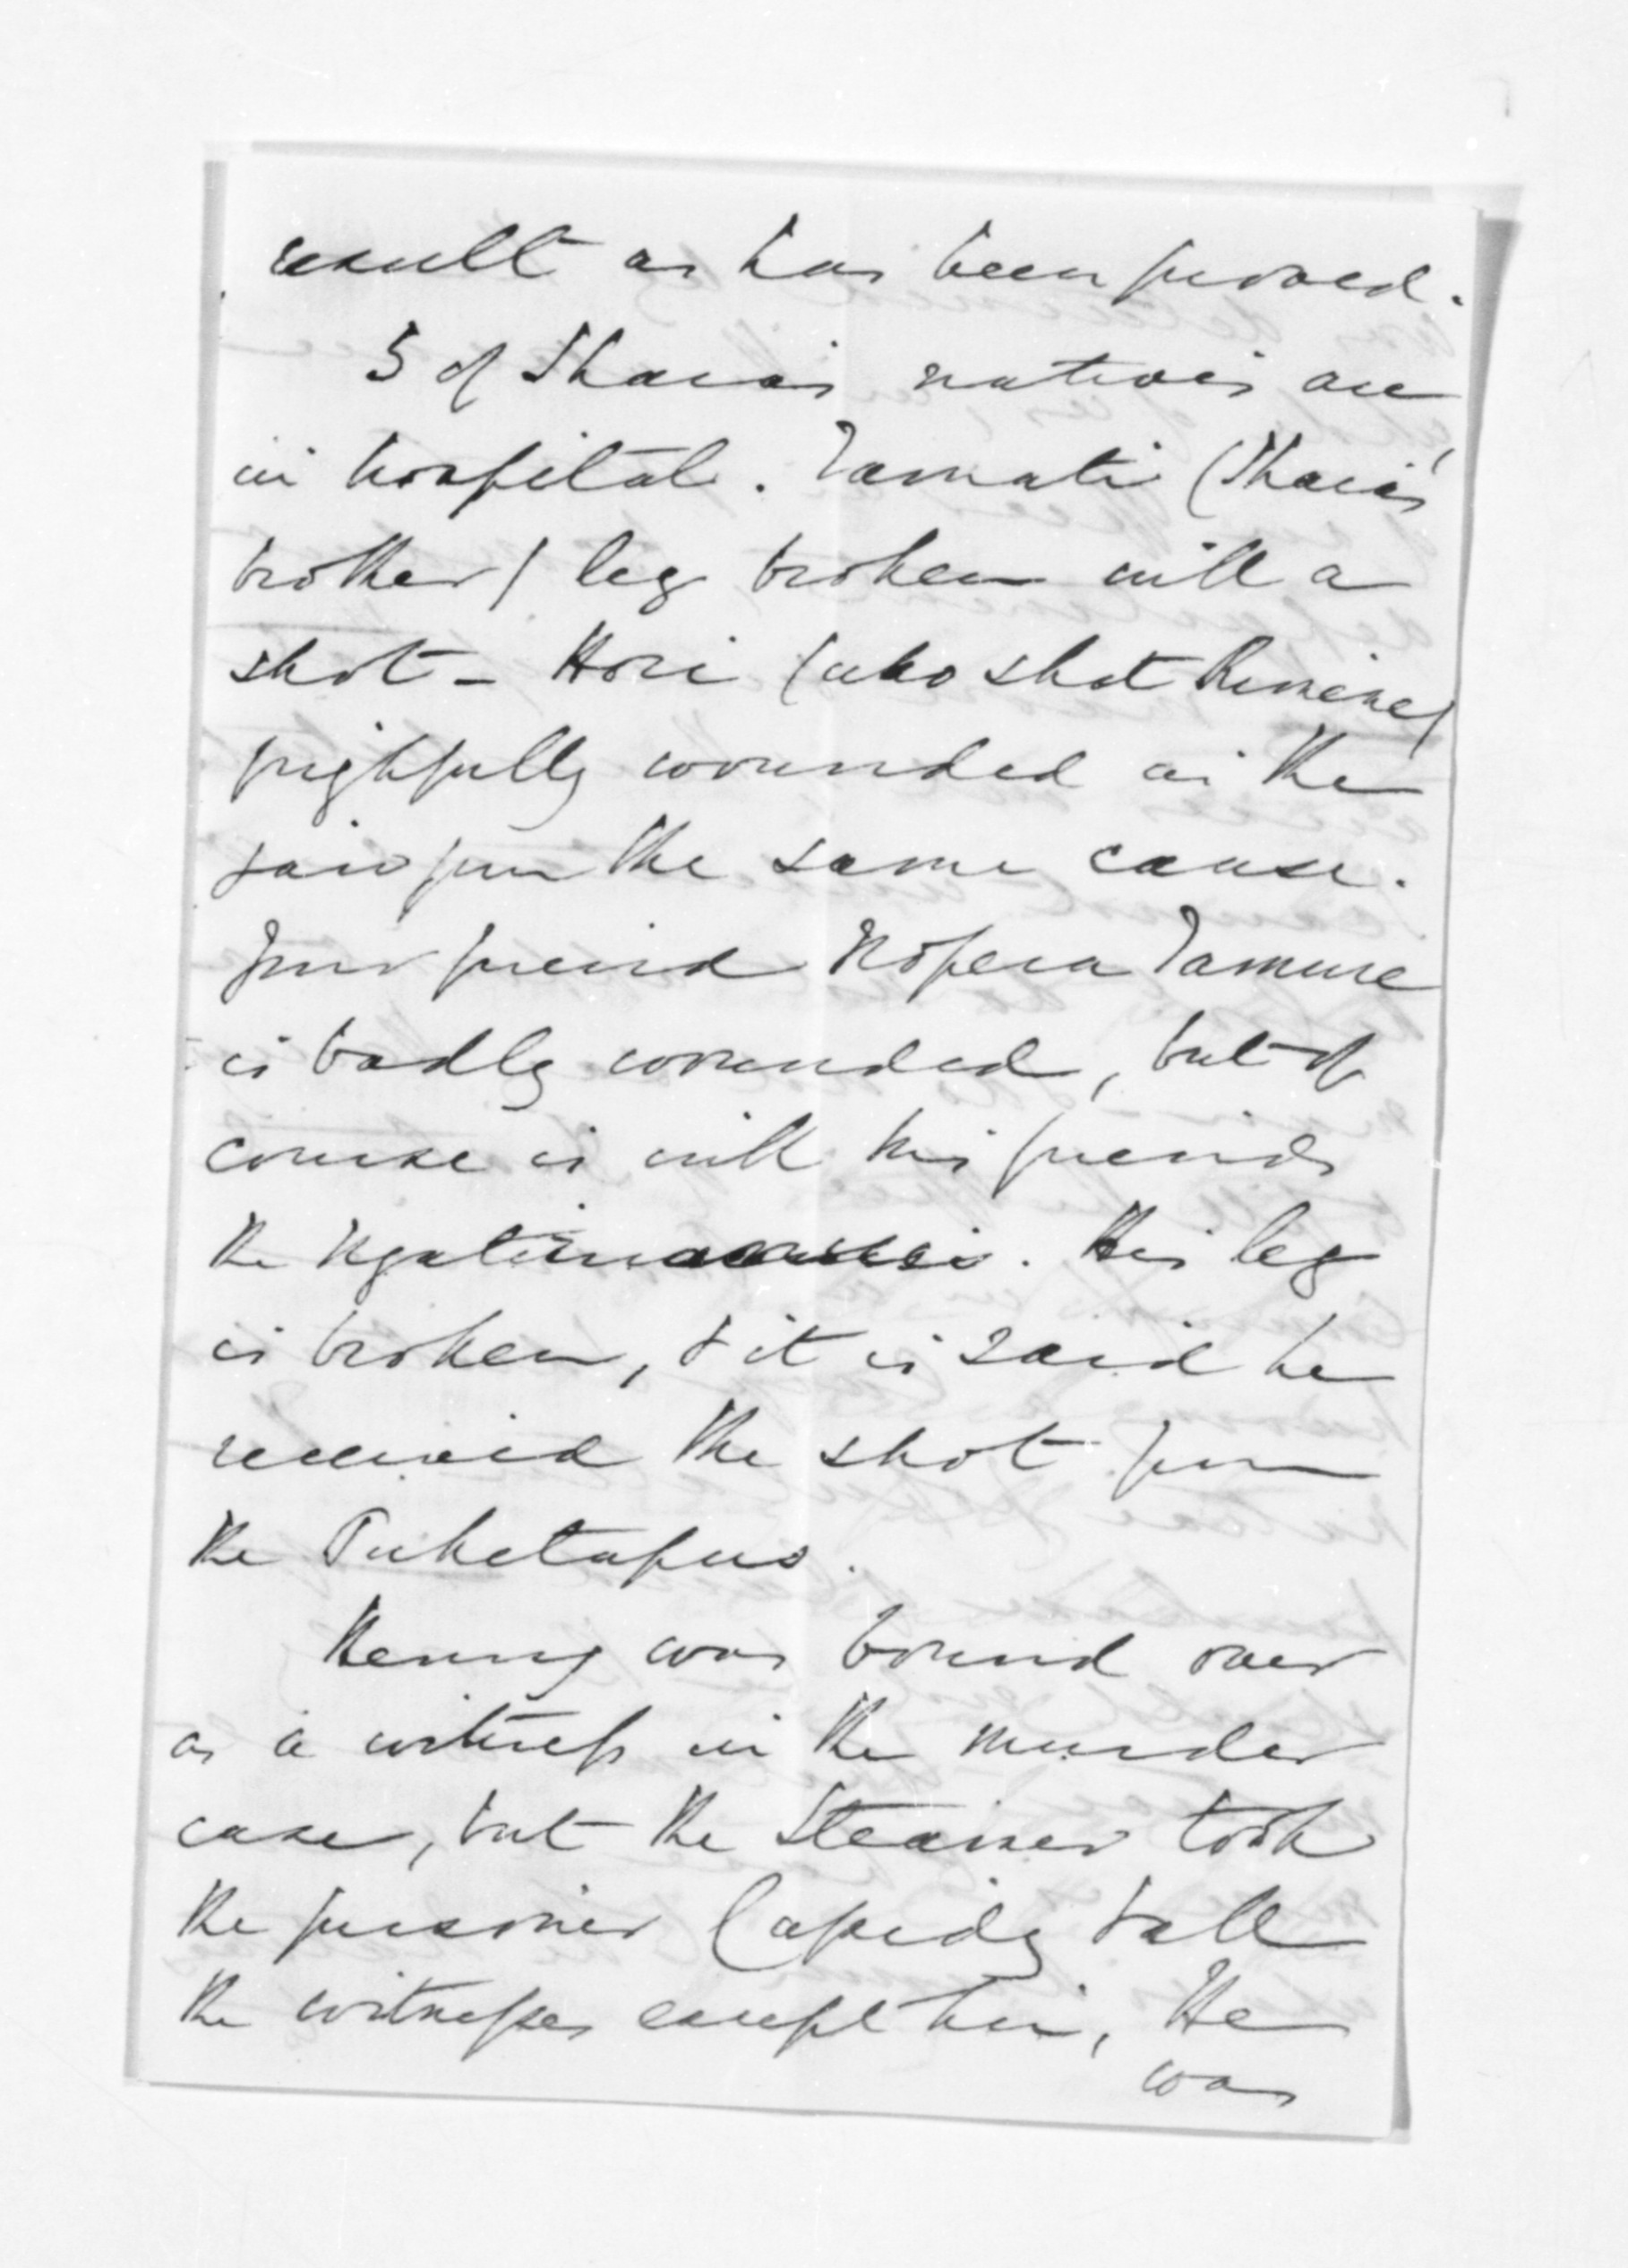 result as has been proved.
5 of Ihaia's natives are
in hospital. Tamati (Ihaia's
brother) leg broken with a
shot - Hori (who shot Rimene)
frightfully wounded in the
jaw from the same cause.
Your friend Ropera Tamure
is badly wounded, but of
course is with his friends
the Ngatiruanui. His leg
is broken, & it is said he
received the shot from
the Puketapus.
Kenny was bound over
as a witness in the murder
case, but the Steamer took
the prisoner Cassidy & all
the witnesses except him, He
was